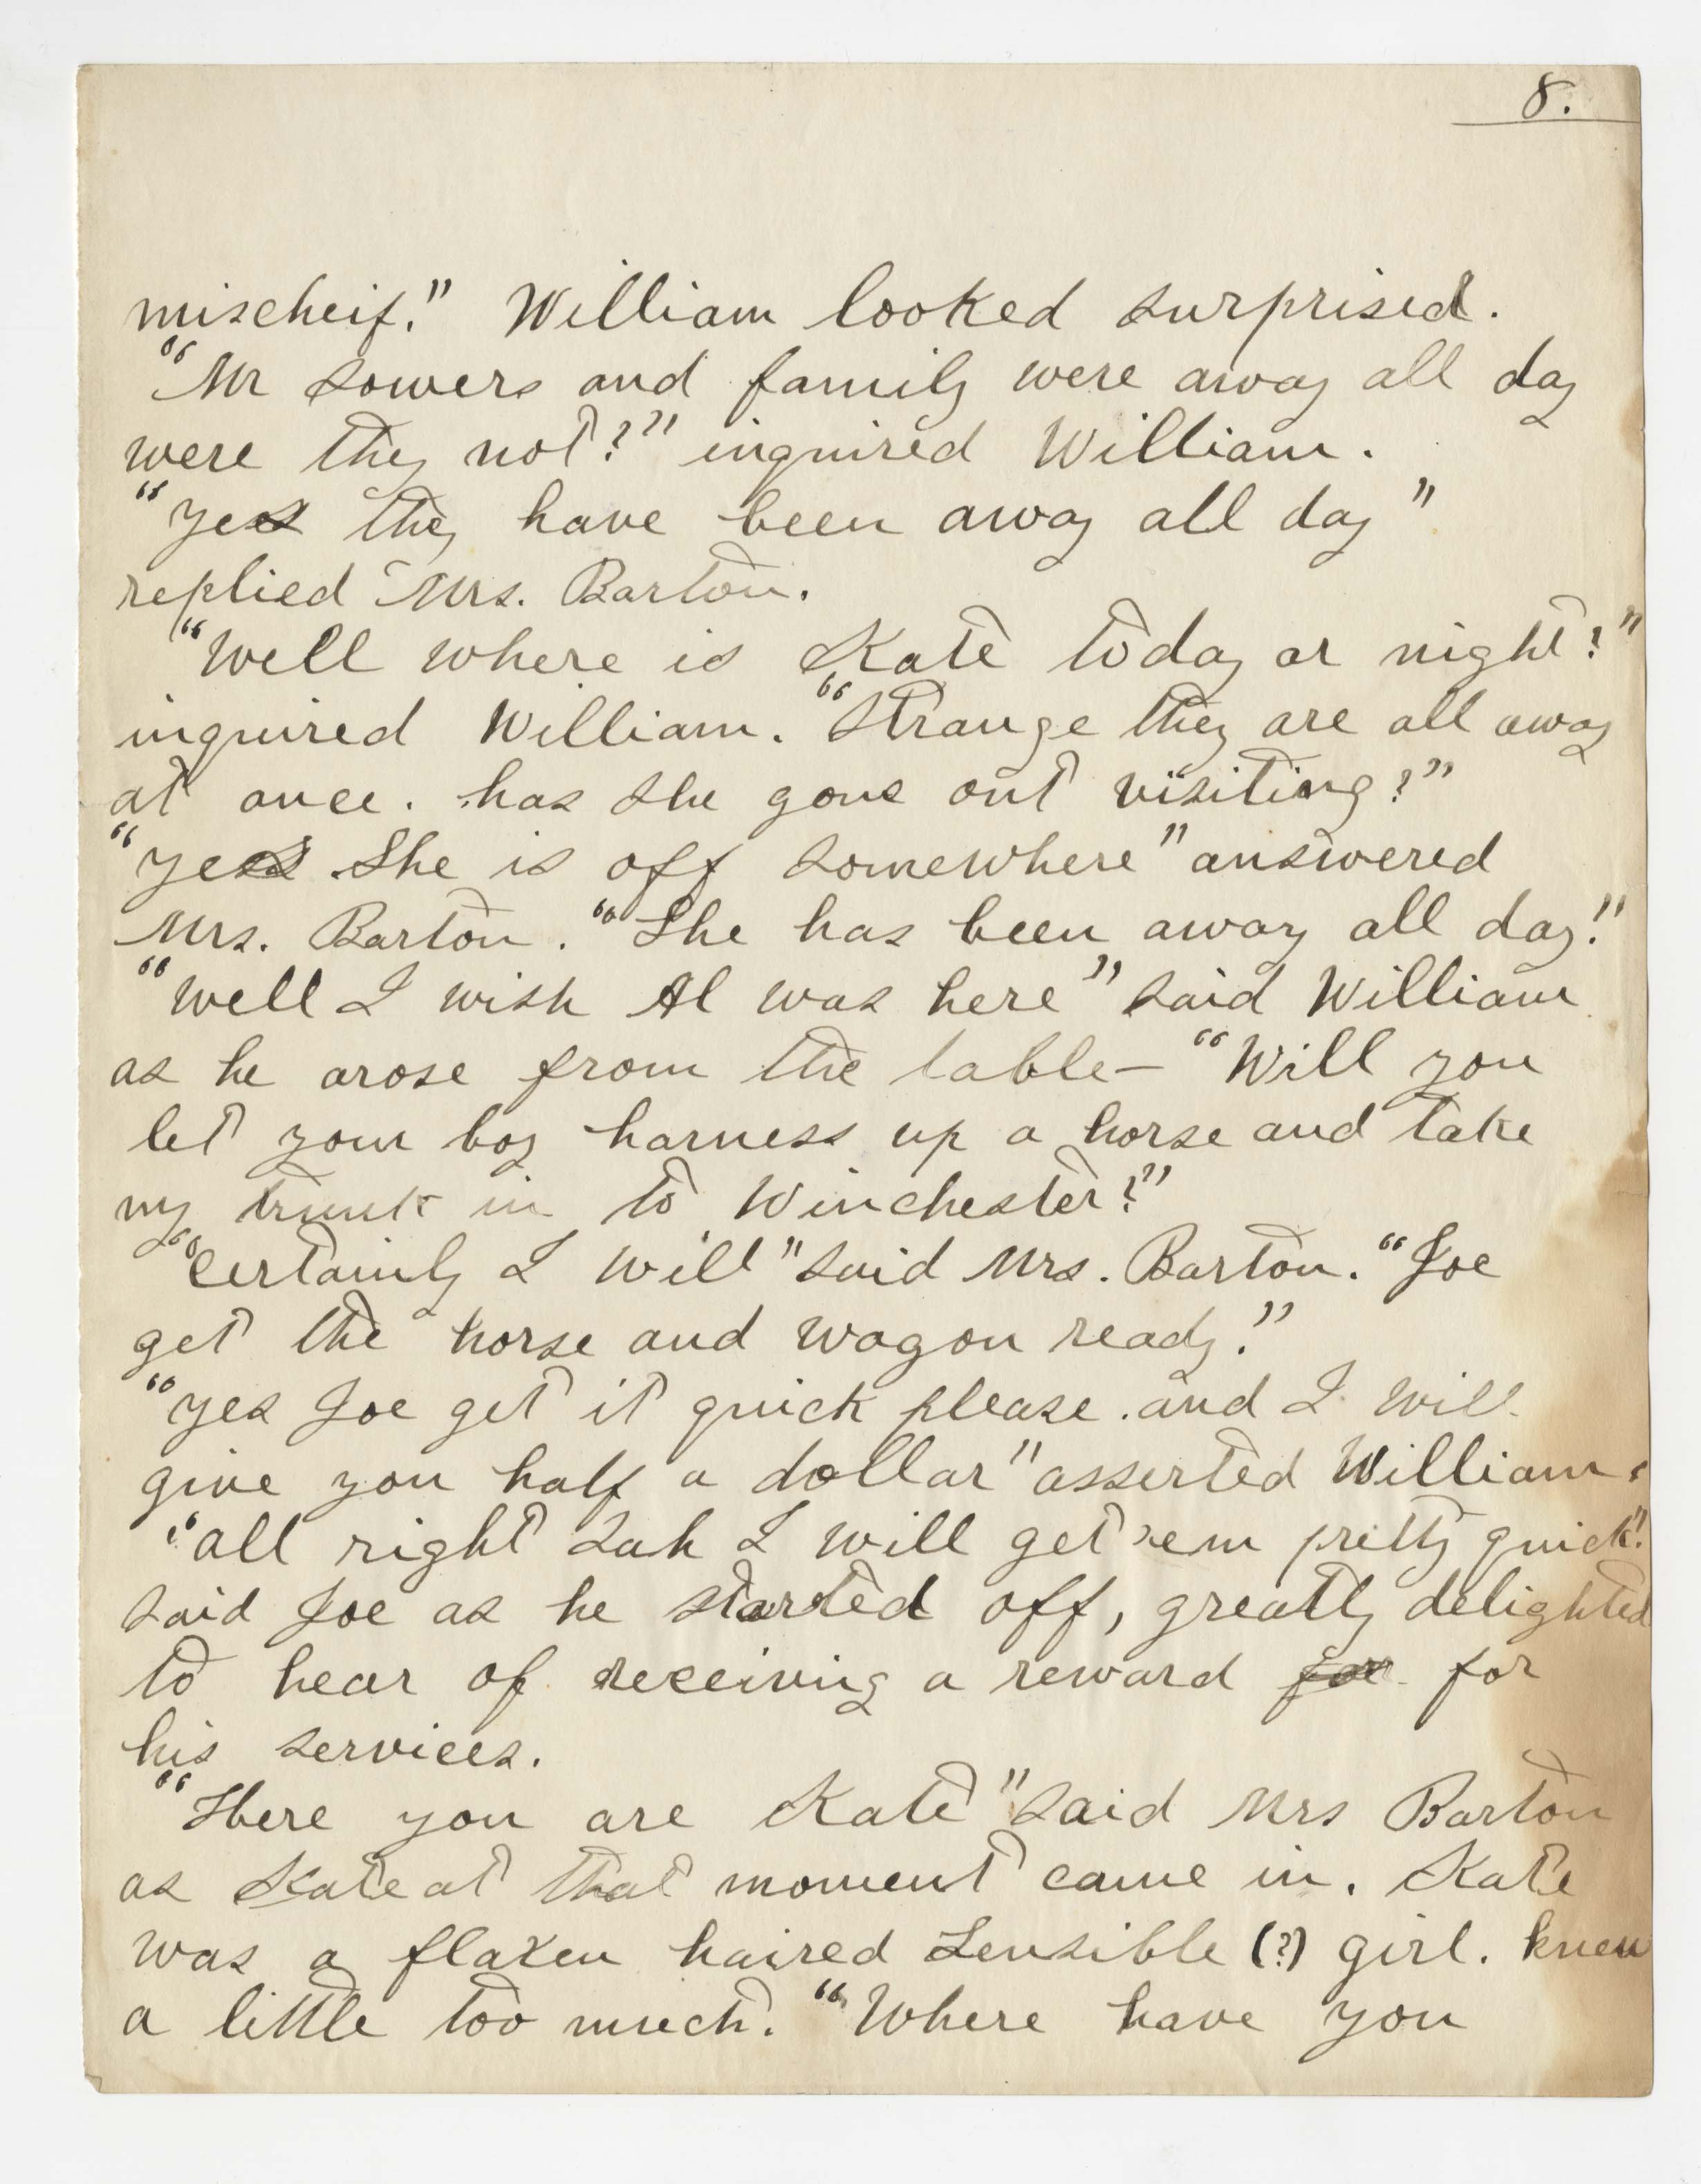 8.
mischeif." William looked surprised.
"Mr Sowers and family were away all day
were they not?" inquired William.
"yes they have been away all day"
replied Mrs. Barton.
"Well where is Kate today or night?"
inquired William. "Strange they are all away
at once. has she gone out visiting?"
"yes She is off somewhere" answered
Mrs. Barton. "She has been away all day."
"Well I wish Al was here" said William
as he arose from the table— "Will you
let your boy harness up a horse and take
my trunk in to Winchester?"
"Certainly I will" said Mrs. Barton. "Joe
get the horse and wagon ready."
"yes Joe get it quick please. and I will
give you half a dollar" asserted William.
"all right Sah I will get 'em pretty quick."
said Joe as he started off, greatly delighted
to hear of receiving a reward for for
his services.
"Here you are Kate" said Mrs Barton
as Kate at that moment came in. Kate
was a flaxen haired Sensible (?) girl. knew
a little too much. "Where have you